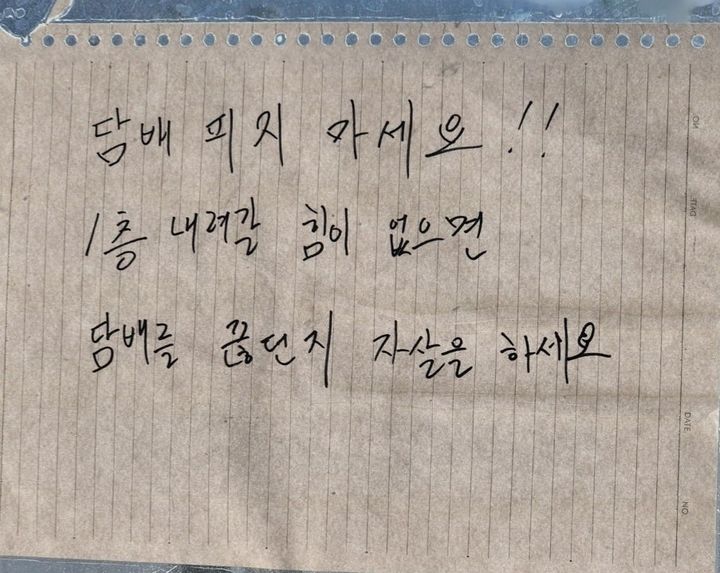 담배 피지 마세요!!
1층 내려갈 힘이 없으면
담배를 끊던지 자살을 하세요
NO
DATE
DATE
NO